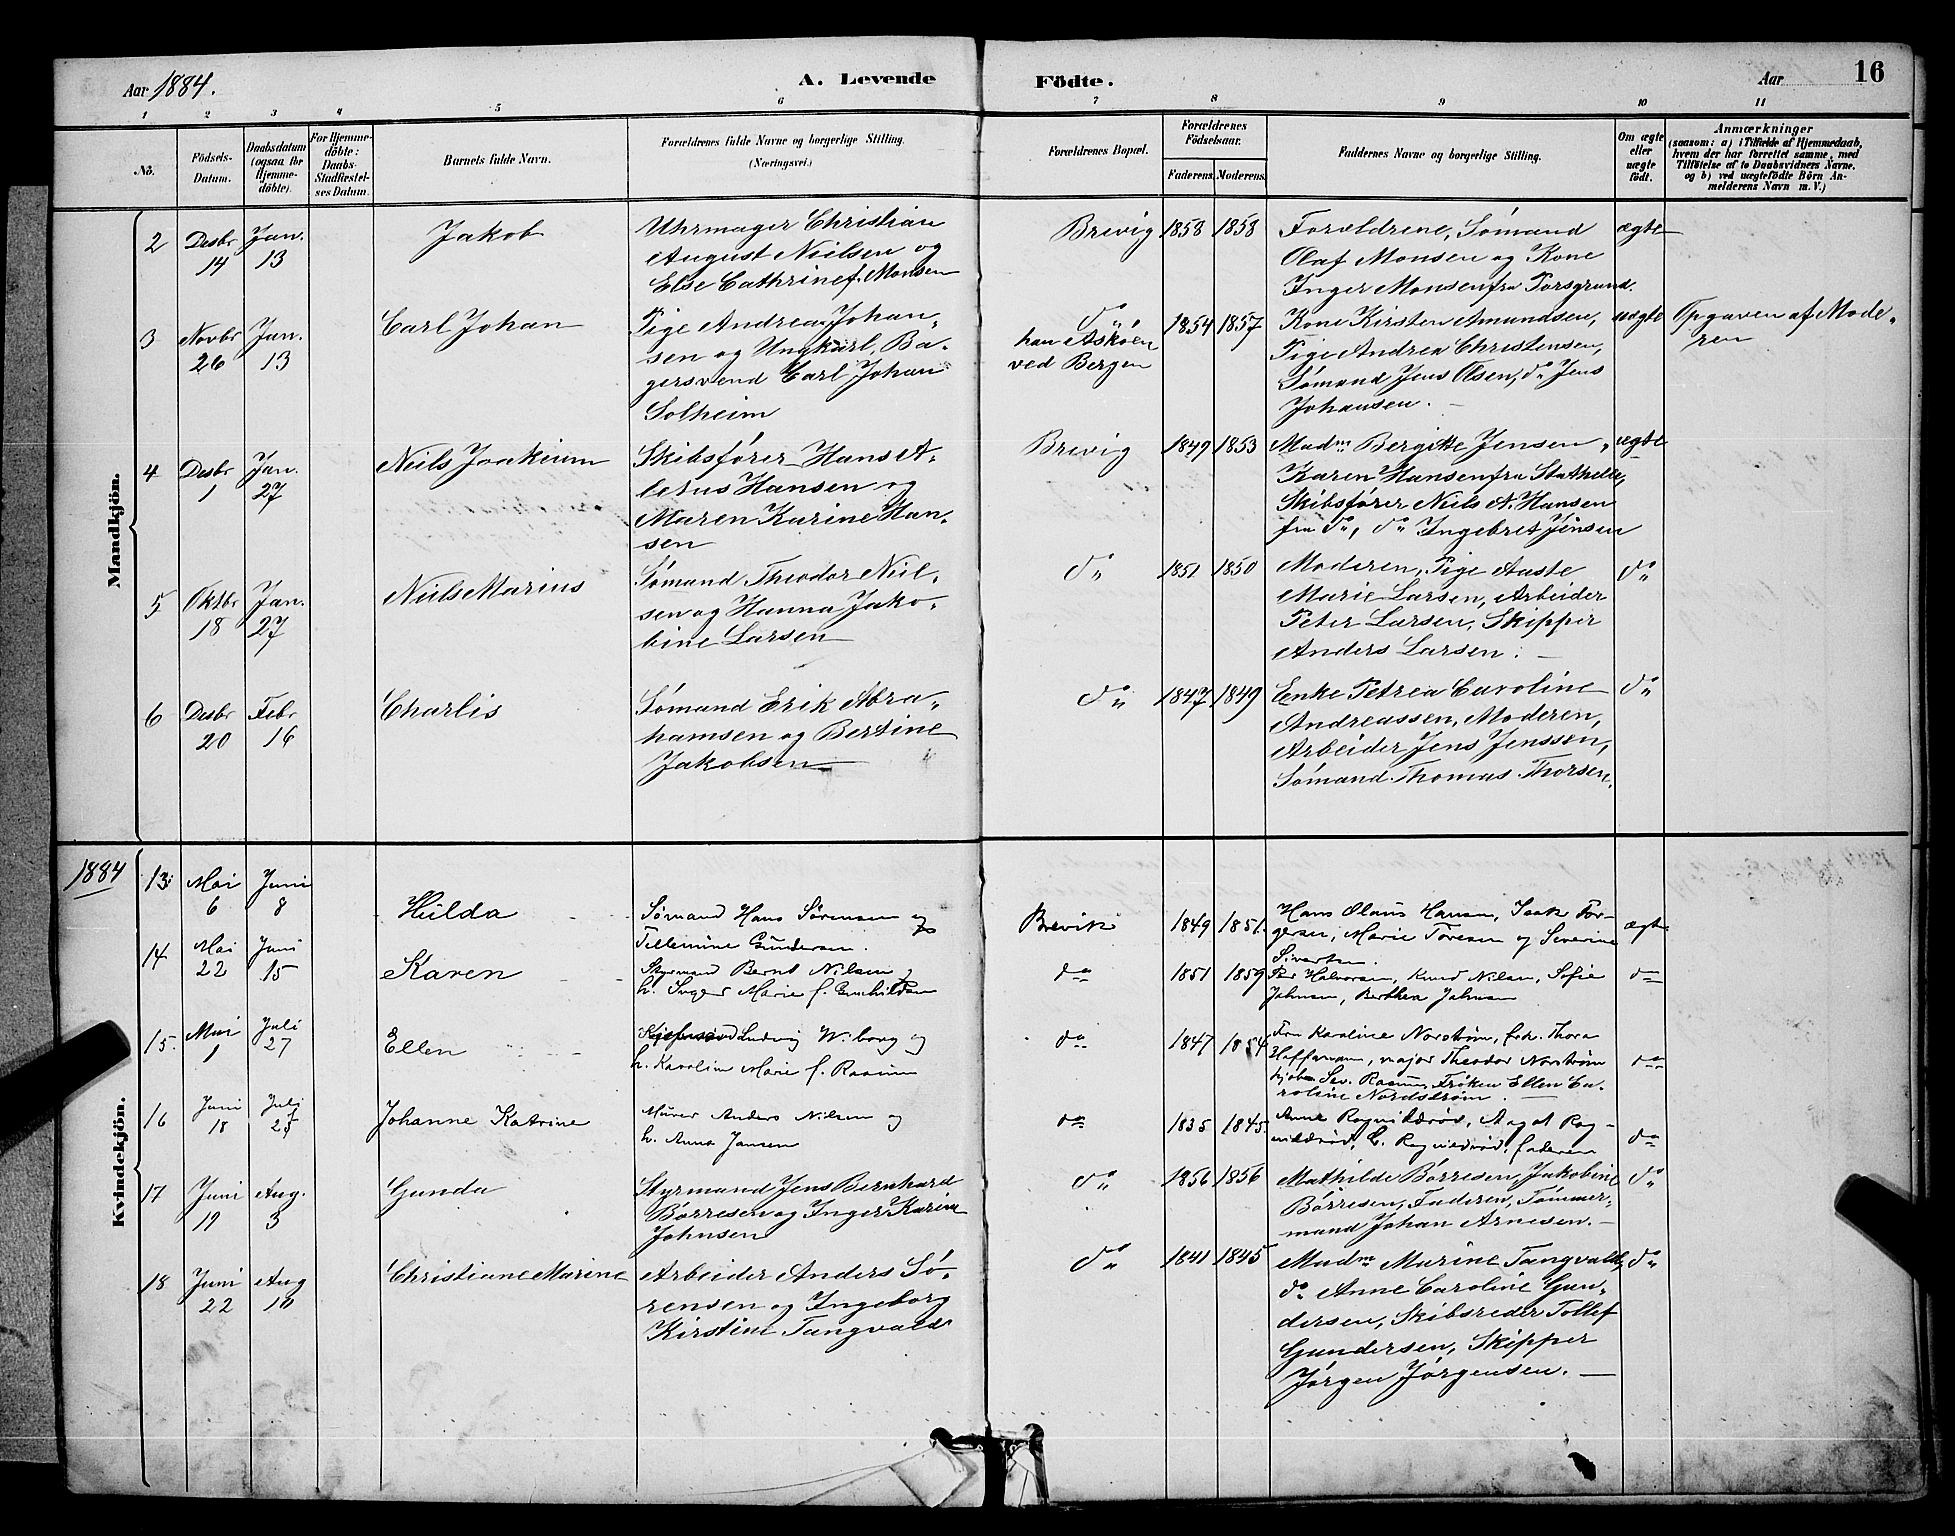 Aar 1884.
A. Levende Födte.
Aar 16
1 2 3 4 5 6 7 8 9 10 11
No.
Födsels-Datum.
Daabsdatum (ogsaa for Hjemme-döbte).
For Hjemme-döbte: Daabs-Stadfæstel-ses Datum.
Barnets fulde Navn.
Forældrenes fulde Navne og borgerlige Stilling.
(Næringsvei.)
Forældrenes Bopæl.
Forældrenes Födselsaar.
Faderens. Moderens.
Faddernes Navne og borgerlige Stilling.
Om ægte eller uægte födt.
Anmærkninger
(saasom: a) i Tilfælde af Hjemmedaab,
hvem der har forrettet samme, med
Tilföielse af to Daabsvidners Navne.
og b) ved uægtefödte Börn An-
melderens Navn m. V.)
Mandkjön.
2 Desbr 14 Jan. 13 Jakob
Uhrmager Christian
August Nielsen og
Else Cathrine f. Monsen
Brevig 1858 1858
Forældrene, Sømand
Olaf Monsen og Kone
Inger Monsen fra Porsgrund.
ægte
3 Novbr 26 Jan. 13 Carl Johan
Pige Andrea Johan-
sen og Ungkarl, Ba-
gersvend Carl Johan
Solheim
do
han Askøen
ved Bergen
1854 1857
Kone Kirsten Amundsen,
Pige Andrea Christensen,
Sømand Jens Olsen, do Jens
Johansen.
uægte
Opgaven af Mode-
ren
4 Desbr 1 Jan. 27 Niels Joakim
Skibsfører Hans A-
letus Hansen og
Maren Karine Han-
sen
Brevig 1849 1853
Madm Bergitte Jensen,
Karen Hansen fra Stathelle,
Skibsfører Niels A. Hansen
fra do, do Ingebret Jensen
ægte
5 Oktbr 18 Jan. 27 Niels Marius
Sømand Theodor Niel-
sen og Hanna Jako-
bine Larsen
do 1851 1850
Moderen, Pige Aaste
Marie Larsen, Arbeider
Peter Larsen, Skipper
Anders Larsen.
do
6 Desbr 20 Febr 16 Charlis
Sømand Erik Abra-
hamsen og Bertine
Jakobsen
do 1847 1849
Enke Petrea Caroline
Andreassen, Moderen,
Arbeider Jens Jenssen,
Sømand Thomas Thorsen.
do
1884
Kvindekjön.
13. Mai 6 Juni 8 Hilda
Sømand Hans Sørensen og
Tellemine Gundersen.
Brevik 1849 1851.
Hans Olaus Hansen, Isak Tor-
gersen, Marie Toresen og Severine
Sivertsen.
ægte
14 Mai 22 Juni 15 Karen
Styrmand Bernt Nilsen
h. Inger Marie f.
do 1851 1859
Per Halvorsen, Knud Nilsen, Sofie
Johnsen, Berthea Johnsen
do
15. Mai 1 Juli 27 Ellen
Ludvig Wiborg og
h. Karoline Marie f.
do 1847 1854
Fru Karoline Norstrøm, frk. Thora
Hoffmann, major Theodor Norstrøm
kjøbm. Sev. Frøken Ellen Ca-
roline Nordstrøm.
do
16 Juni 18 Juli 25 Johanne Katrine
Murer Anders Nilsen og
h. Anna Jansen
do 1835 1845.
Anne Ragnildrød, Aagot Rag-
nildrød, C. Ragnildrød, faderen
do
17 Juni 19 Aug. 3 Gunda
Styrmand Jens Bernhard
Børresen og Inger Karine
Johnsen
do 1856 1856
Mathilde Børresen, Jakobine
Børresen, Faderen, Tømmer-
mand Johan Arnesen.
do
18 Juni 22 Aug 10 Christiane Marine
Arbeider Anders Sø-
rensen og Ingeborg
Kirstine Tangvald
do 1841 1845
Madm Marine Tangvald,
do Anne Caroline Gun-
dersen, Skibsreder Tollef
Gundersen, Skipper
Jørgen Jørgensen.
do